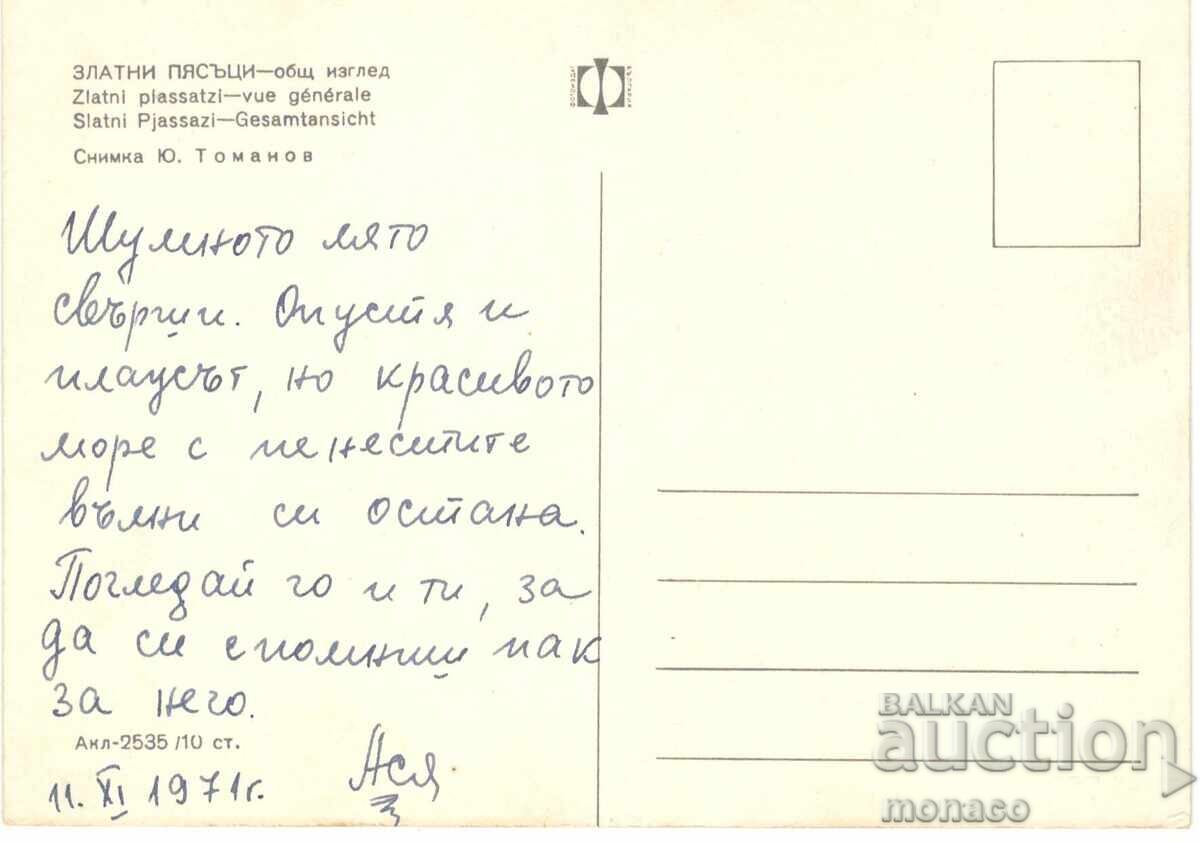 ЗЛАТНИ ПЯСЪЦИ—общ изглед
Zlatni piassatzi—vue générale
Slatni Pjassazi—Gesamtansicht
Снимка Ю. Томанов
ФОТОИЗДАТ
Шумното лято
свърши. Опустя и
плажът, но красивото
море с пенестите
вълни си остана.
Погледай го и ти, за
да си спомниш пак
за него.
Акл-2535/10 ст.
11. XI 1971г.
Ася
BALKAN
auction
monaco